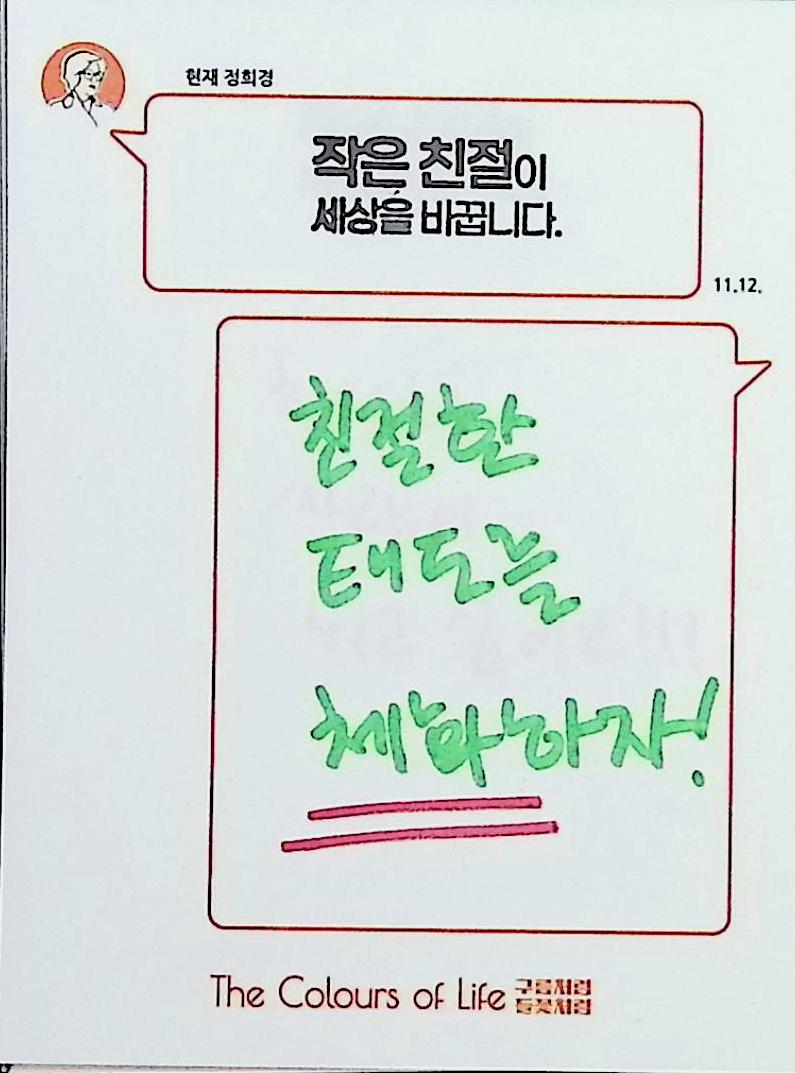 현재 정희경
작은 친절이
세상을 바꿉니다.
11.12.
친절한
태도를
체화하자!
The Colours of Life 구름처럼
들꽃처럼